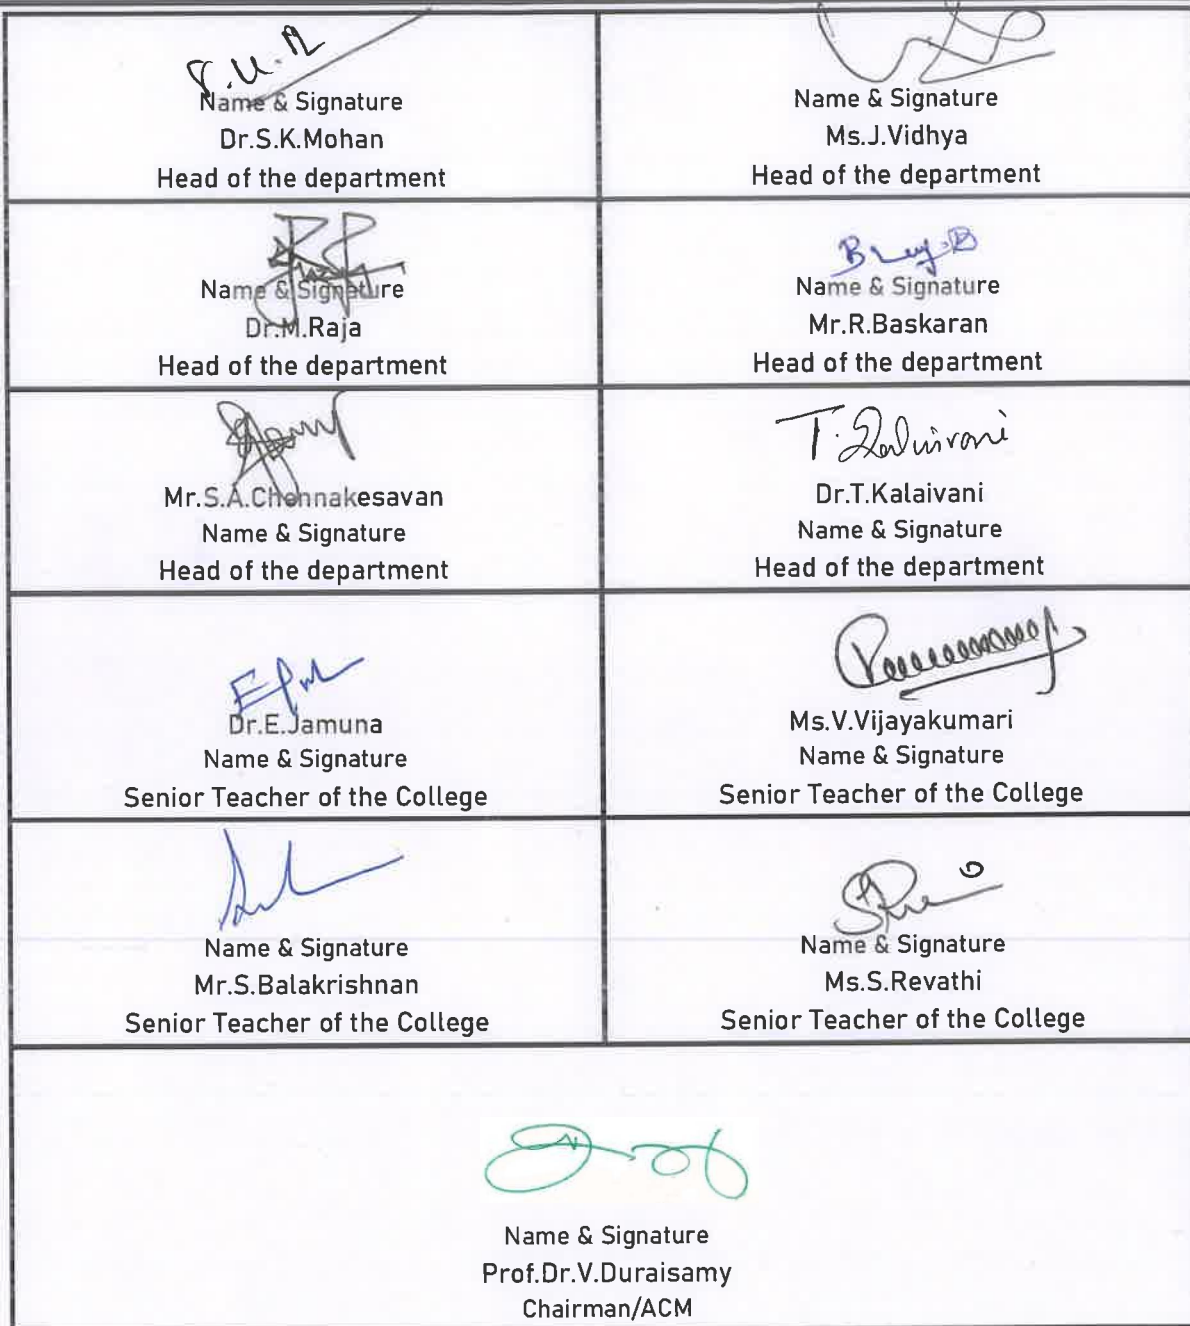 Name & Signature
Dr.S.K.Mohan
Head of the department
Name & Signature
Ms.J.Vidhya
Head of the department
Name & Signature
Dr.M.Raja
Head of the department
Name & Signature
Mr.R.Baskaran
Head of the department
Mr.S.A.Chennakesavan
Name & Signature
Head of the department
T. Kalaivani
Dr.T.Kalaivani
Name & Signature
Head of the department
Dr.E.Jamuna
Name & Signature
Senior Teacher of the College
Ms.V.Vijayakumari
Name & Signature
Senior Teacher of the College
Name & Signature
Mr.S.Balakrishnan
Senior Teacher of the College
Name & Signature
Ms.S.Revathi
Senior Teacher of the College
Name & Signature
Prof.Dr.V.Duraisamy
Chairman/ACM